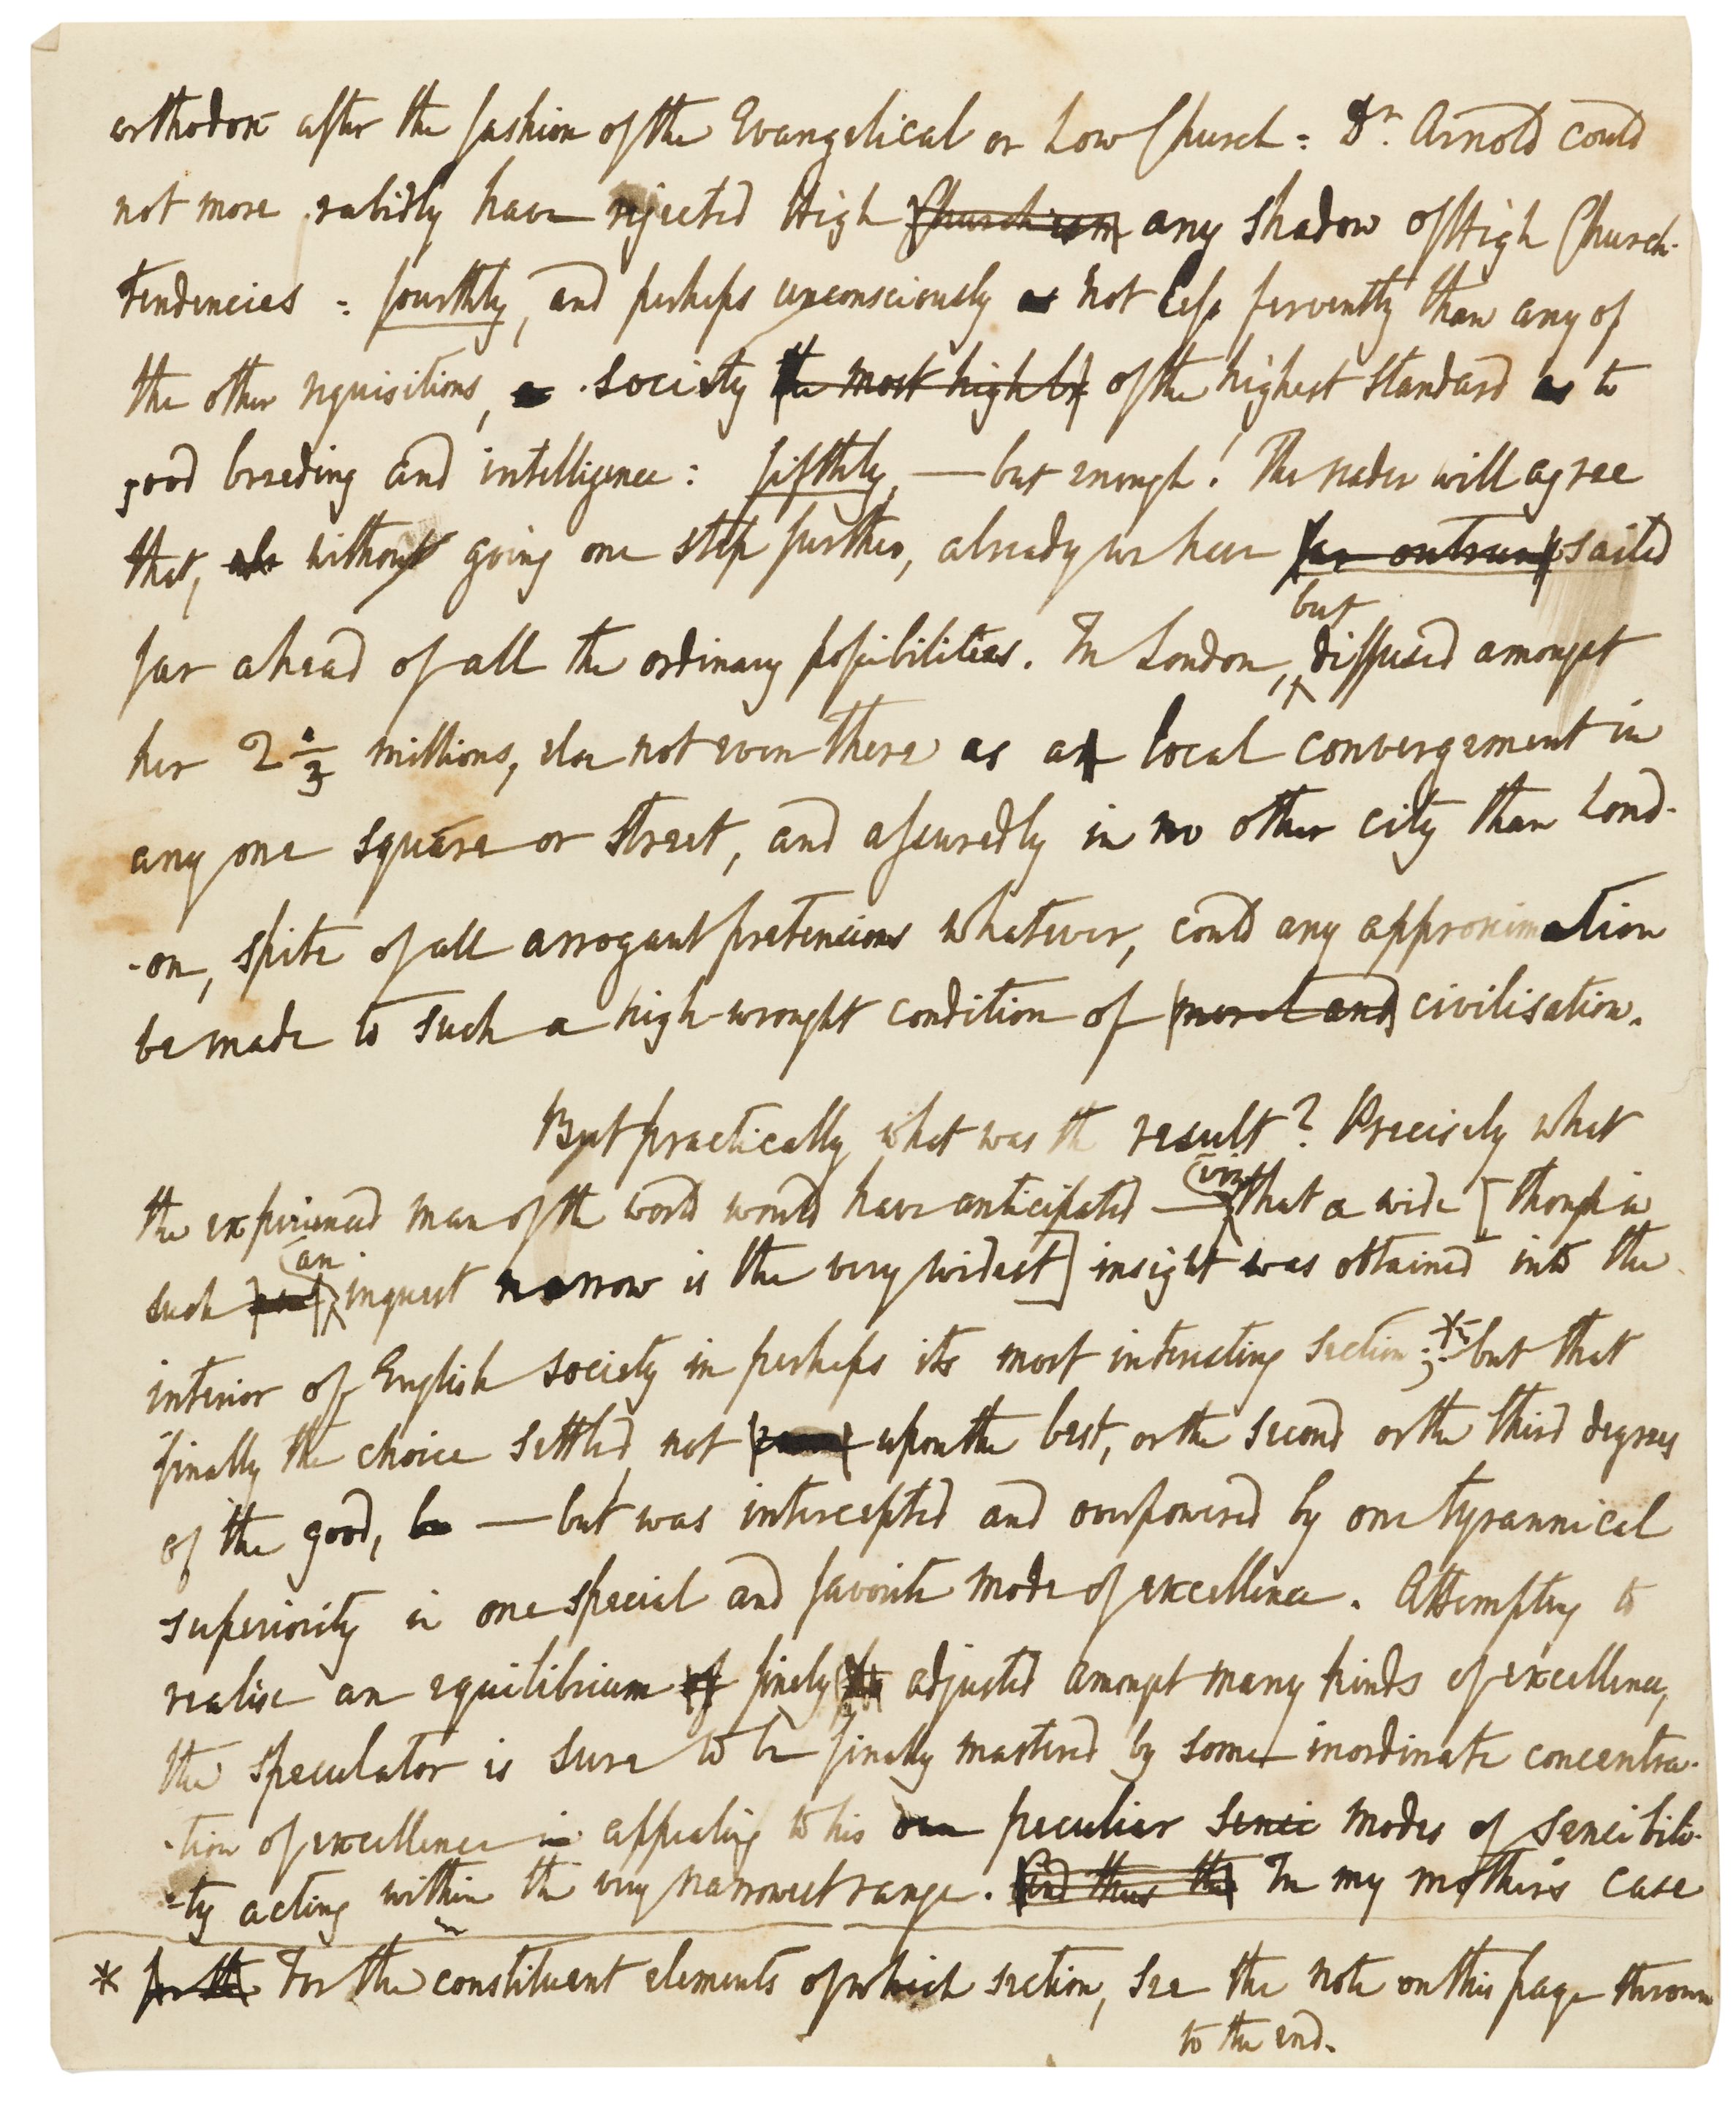 orthodox after the fashion of the Evangelical or Low Church: Dr. Arnold could
not more rabidly have rejected High Churchism any shadow of High Church-
tendencies: fourthly, and perhaps unconsciously as not less fervently than any of
the other requisitions, a society the most highly of the highest standard as to
good breeding and intelligence: fifthly, — but enough! The reader will agree
that, without going one step further, already we have far outrun sailed
but
far ahead of all the ordinary possibilities. In London, diffused amongst
her 2 1/3 millions, else not even there as a local convergement in
any one square or street, and assuredly in no other city than Lond-
-on, spite of all arrogant pretensions whatever, could any approximation
be made to such a high-wrought condition of moral and civilisation.
But practically what was the result? Precisely what
viz
the experienced man of the world would have anticipated — that a wide [though in
an
such inquest narrow is the very widest] insight was obtained into the
interior of English society in perhaps its most interesting section;* but that
finally the choice settled, not upon the best, or the second or the third degrees
of the good, bu — but was intercepted and overpowered by one tyrannical
superiority in one special and favorite mode of excellence. Attempting to
realise an equilibrium of finely adjusted amongst many kinds of excellence,
the speculator is sure to be finally mastered by some inordinate concentra-
-tion of excellence in appealing to his own peculiar sensi modes of sensibili-
-ty acting within the very narrowest range. And thus the In my mother's case
* for the For the constituent elements of which section, see the note on this page thrown
to the end.